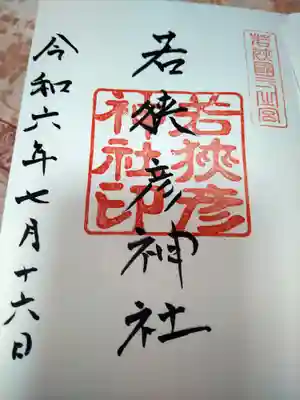 若狭國一之宮
若狭彦神社
若狭彦
神社印
令和六年七月十六日